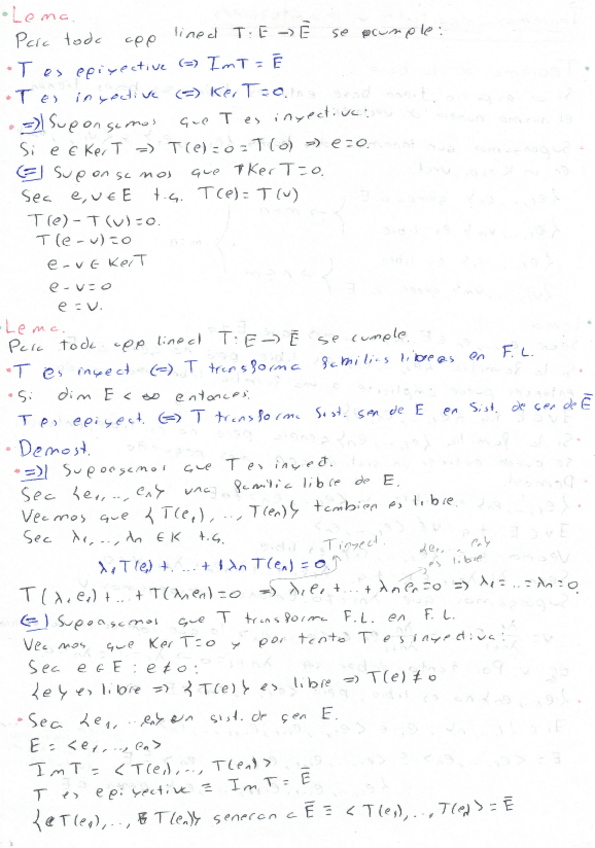 • Lema.
Para toda app lineal T: E → Ē se cumple:
• T es epiyectiva ⇔ Im T = Ē
• T es inyectiva ⇔ Ker T = 0.
• ⇒| Supongamos que T es inyectiva:
Si e ∈ Ker T ⇒ T(e) = 0 = T(0) ⇒ e = 0.
⇐| Supongamos que Ker T = 0.
Sea e, v ∈ E t.q. T(e) = T(v)
T(e) - T(v) = 0.
T(e - v) = 0
e - v ∈ Ker T
e - v = 0
e = v.
• Lema.
Para toda app lineal T: E → Ē se cumple.
• T es inyect ⇔ T transforma familias libres en F.L.
• Si dim E < ∞ entonces:
T es epiyect. ⇔ T transforma Sist. gen de E en Sist. de gen de Ē
• Demost.
• ⇒| Supongamos que T es inyect.
Sea {e₁, .., eₙ} una familia libre de E.
Veamos que {T(e₁), .., T(eₙ)} tambien es libre.
Sea λ₁, .., λₙ ∈ K t.q.
T inyect. {e₁, .. eₙ} es libre
λ₁T(e₁) + ... + λₙT(eₙ) = 0
T(λ₁e₁) + ... + T(λₙeₙ) = 0 ⇒ λ₁e₁ + ... + λₙeₙ = 0 ⇒ λ₁ = ... = λₙ = 0.
⇐| Supongamos que T transforma F.L. en F.L.
Veamos que Ker T = 0 y por tanto T es inyectiva:
Sea e ∈ E : e ≠ 0:
{e} es libre ⇒ {T(e)} es libre ⇒ T(e) ≠ 0
• Sea {e₁, .. eₙ} un sist. de gen E.
E = <e₁, .., eₙ>
Im T = <T(e₁), .., T(eₙ)>
T es epiyectiva ≡ Im T = Ē
{T(e₁), .., T(eₙ)} generan a Ē ≡ <T(e₁), .., T(eₙ)> = Ē